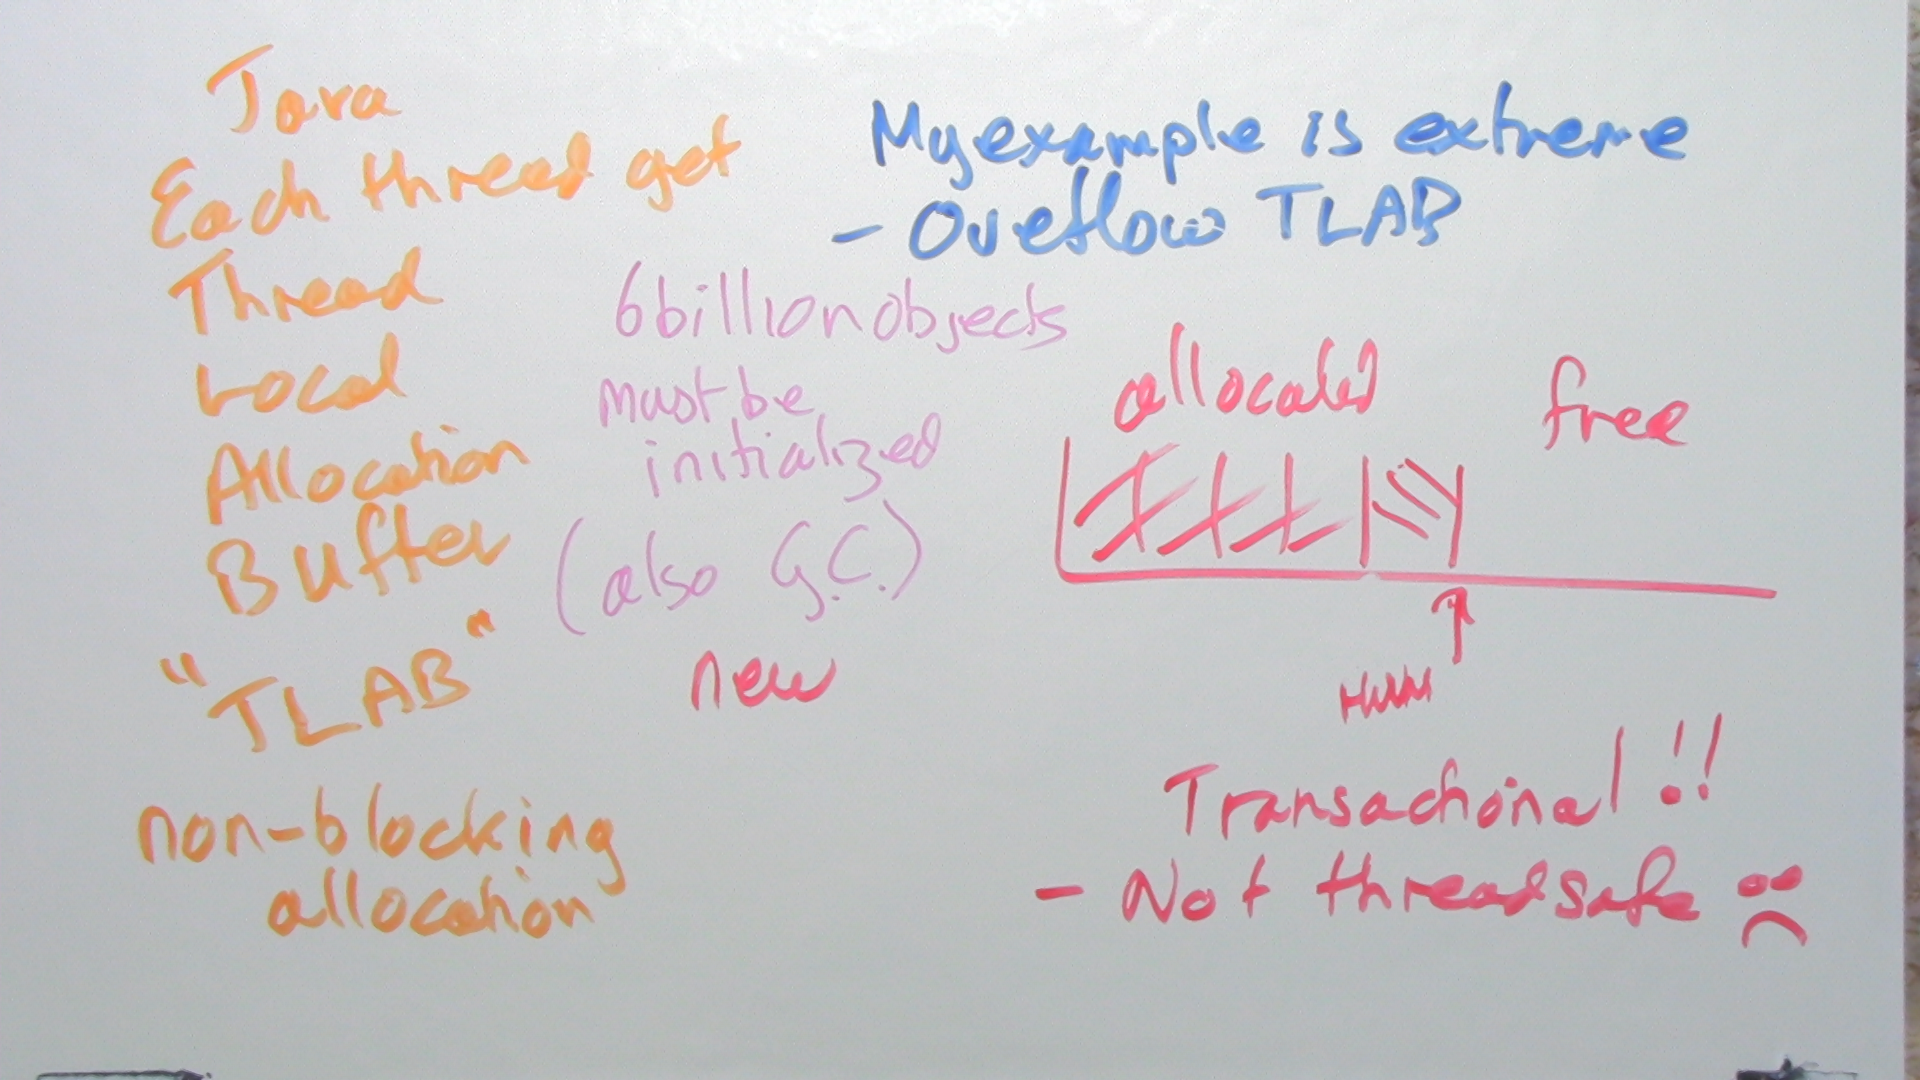 Java
Each thread get
Thread
Local
Allocation
Buffer
"TLAB"
non-blocking
allocation
6 billion objects
must be
initialized
(also G.C.)
new
My example is extreme
- Oveflow TLAB
allocated free
HWM
Transactional!!
- Not threadsafe